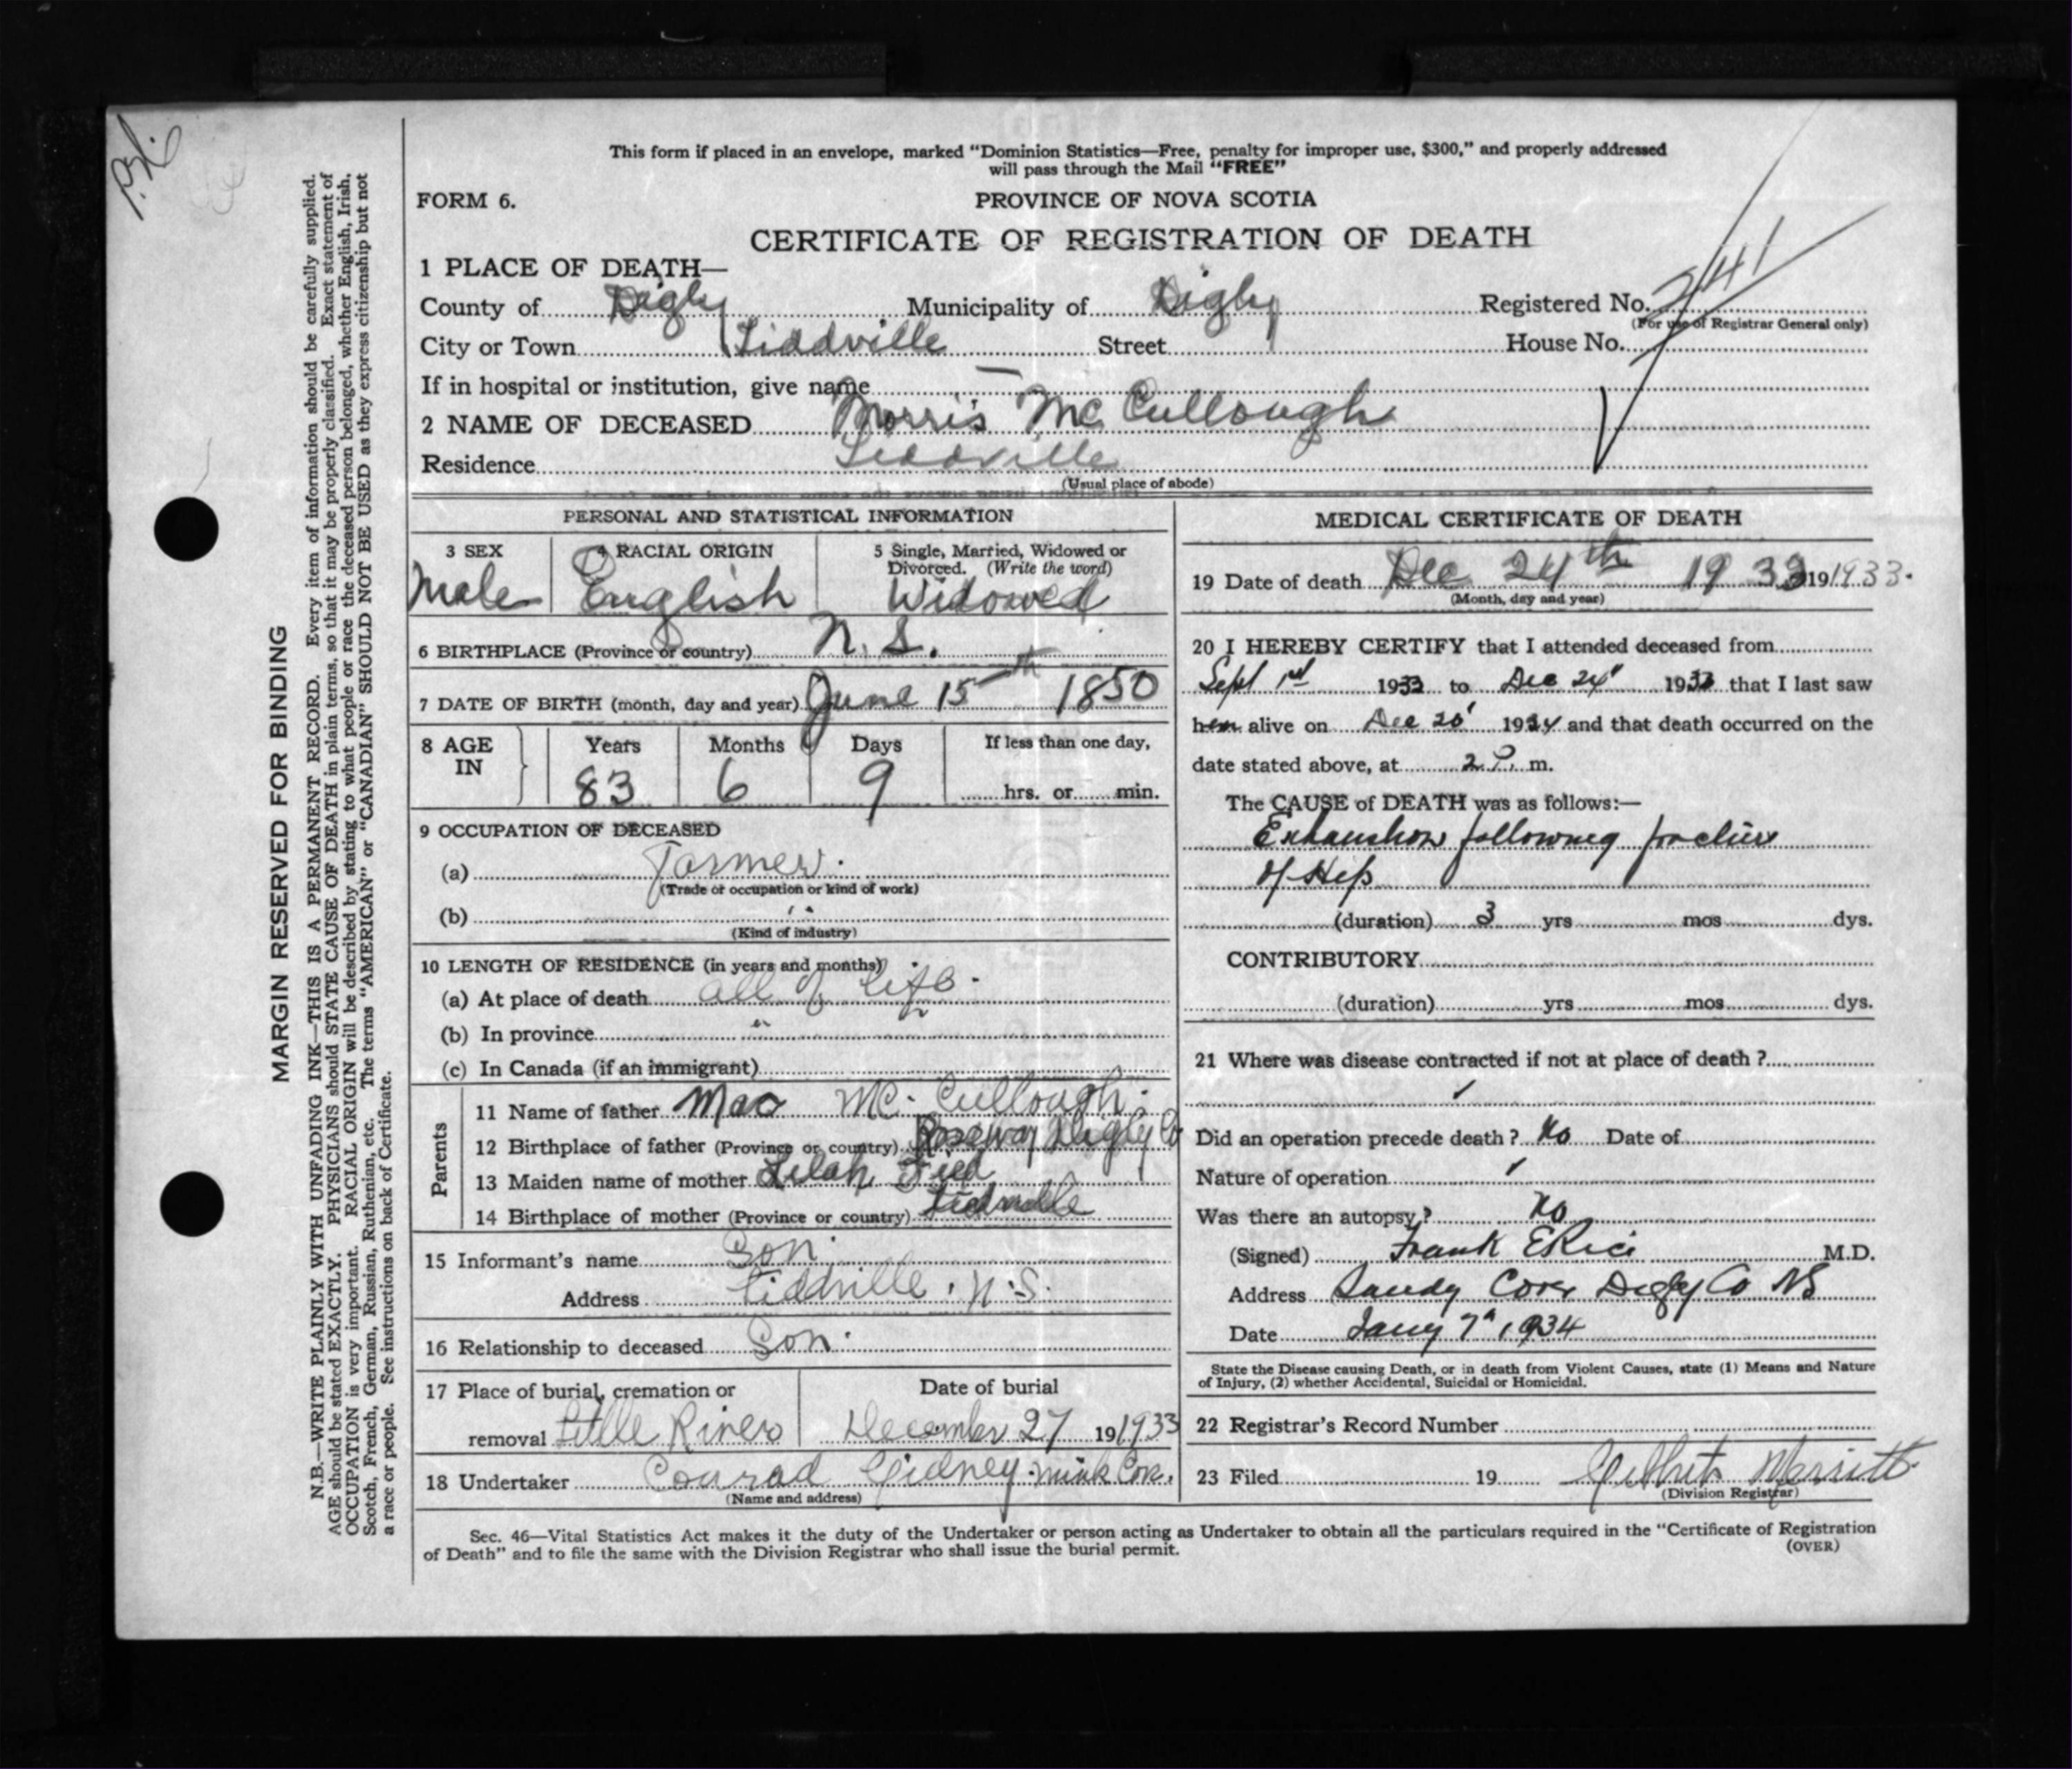 This form if placed in an envelope, marked “Dominion Statistics—Free, penalty for improper use, $300,” and properly addressed
will pass through the Mail “FREE”
FORM 6.
PROVINCE OF NOVA SCOTIA
CERTIFICATE OF REGISTRATION OF DEATH
1 PLACE OF DEATH—
County of Digby Municipality of Digby Registered No. 241
(For use of Registrar General only)
City or Town Tiddville Street House No.
If in hospital or institution, give name —
2 NAME OF DECEASED Morris McCullough
Residence Tiddville
(Usual place of abode)
PERSONAL AND STATISTICAL INFORMATION
3 SEX 4 RACIAL ORIGIN 5 Single, Married, Widowed or
Divorced. (Write the word)
Male English Widowed
6 BIRTHPLACE (Province or country) N. S.
7 DATE OF BIRTH (month, day and year) June 15th 1850
8 AGE IN Years Months Days If less than one day,
83 6 9 hrs. or min.
9 OCCUPATION OF DECEASED
(a) Farmer.
(Trade or occupation or kind of work)
(b) "
(Kind of industry)
10 LENGTH OF RESIDENCE (in years and months)
(a) At place of death all of life.
(b) In province "
(c) In Canada (if an immigrant)
Parents
11 Name of father Mac McCullough.
12 Birthplace of father (Province or country) Roseway Digby Co
13 Maiden name of mother Lelah
14 Birthplace of mother (Province or country) Tiddville
15 Informant's name Son.
Address Tiddville. N.S.
16 Relationship to deceased Son.
17 Place of burial, cremation or Date of burial
removal Little River December 27 19 1933
18 Undertaker Conrad Gidney. Mink Cove.
(Name and address)
MEDICAL CERTIFICATE OF DEATH
19 Date of death Dec 24th 1933 19 1933.
(Month, day and year)
20 I HEREBY CERTIFY that I attended deceased from
Sept 1st 1933 to Dec 24" 1933 that I last saw
him alive on Dec 20' 1934 and that death occurred on the
date stated above, at 2 P. m.
The CAUSE of DEATH was as follows:—
Exhaustion following fracture
of Hip
(duration) 3 yrs mos dys.
CONTRIBUTORY
(duration) yrs mos dys.
21 Where was disease contracted if not at place of death ?
Did an operation precede death ? No Date of
Nature of operation
Was there an autopsy ? No
(Signed) Frank E Rice M.D.
Address Sandy Cove Digby Co NS
Date Jany 7" 1934
State the Disease causing Death, or in death from Violent Causes, state (1) Means and Nature
of Injury, (2) whether Accidental, Suicidal or Homicidal.
22 Registrar's Record Number
23 Filed 19 Merritt
(Division Registrar)
Sec. 46—Vital Statistics Act makes it the duty of the Undertaker or person acting as Undertaker to obtain all the particulars required in the “Certificate of Registration
of Death” and to file the same with the Division Registrar who shall issue the burial permit.
(OVER)
MARGIN RESERVED FOR BINDING
N.B.—WRITE PLAINLY WITH UNFADING INK—THIS IS A PERMANENT RECORD. Every item of information should be carefully supplied.
AGE should be stated EXACTLY. PHYSICIANS should STATE CAUSE OF DEATH in plain terms, so that it may be properly classified. Exact statement of
OCCUPATION is very important. RACIAL ORIGIN will be described by stating to what people or race the deceased person belonged, whether English, Irish,
Scotch, French, German, Russian, Ruthenian, etc. The terms “AMERICAN” or “CANADIAN” SHOULD NOT BE USED as they express citizenship but not
a race or people. See instructions on back of Certificate.